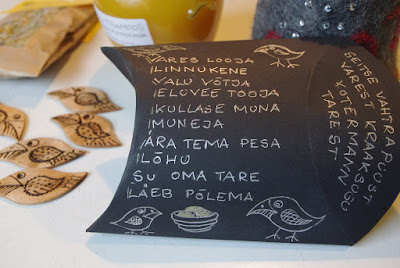 VARES LOOJA
LINNUKENE
VALU VÕTJA
ELUVEE TOOJA
KULLASE MUNA
MUNEJA
ÄRA TEMA PESA
LÕHU
SU OMA TARE
LÄEB PÕLEMA
SEITSE VAHTRAPUUST
VAREST KRAAKSUS
TAREST